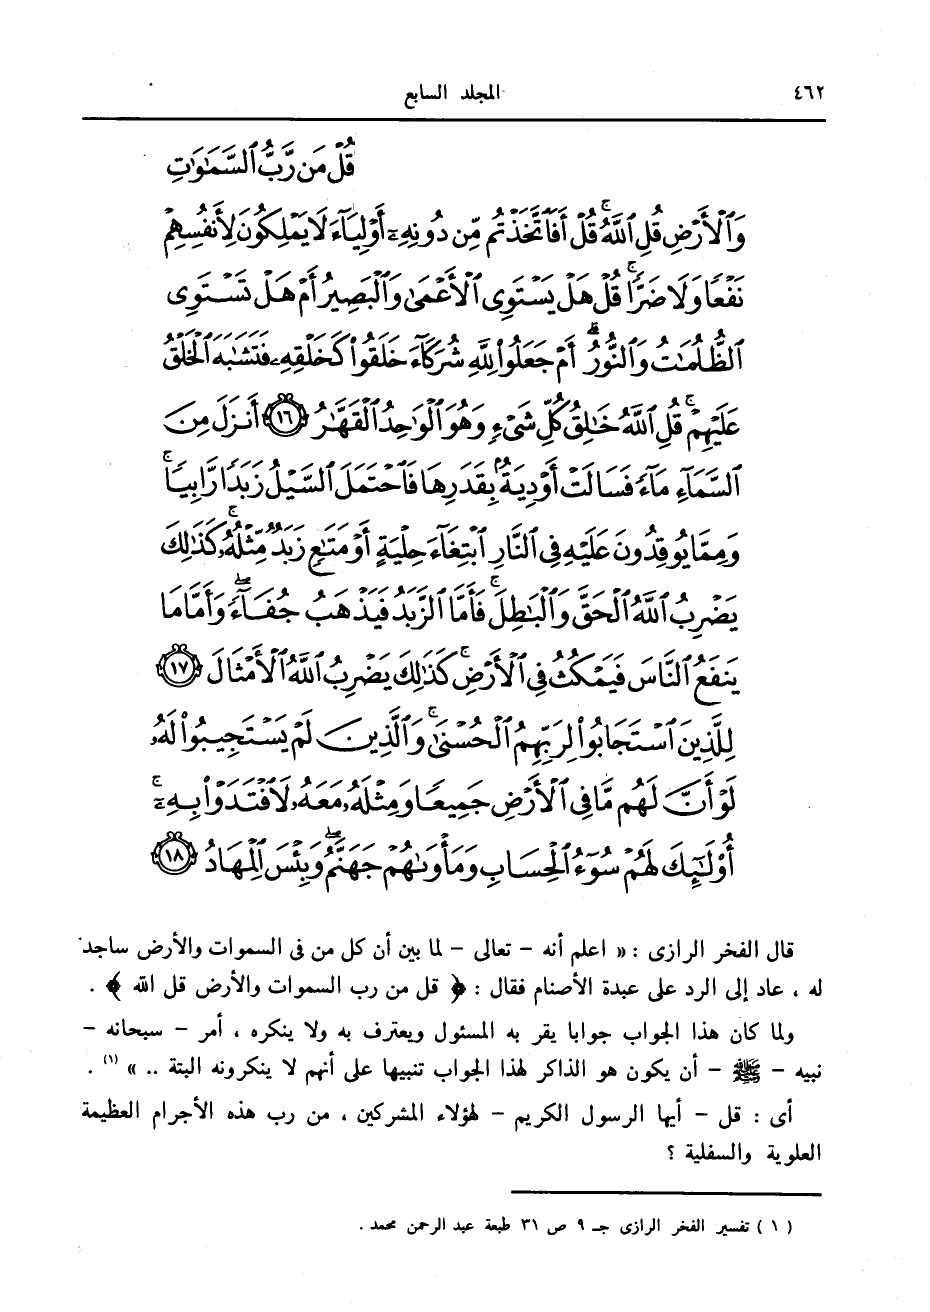 ٤٦٢ المجلد السابع
قُلْ مَن رَّبُّ ٱلسَّمَٰوَٰتِ
وَٱلْأَرْضِ قُلِ ٱللَّهُ ۚ قُلْ أَفَٱتَّخَذْتُم مِّن دُونِهِۦٓ أَوْلِيَآءَ لَا يَمْلِكُونَ لِأَنفُسِهِمْ
نَفْعًا وَلَا ضَرًّا ۚ قُلْ هَلْ يَسْتَوِى ٱلْأَعْمَىٰ وَٱلْبَصِيرُ أَمْ هَلْ تَسْتَوِى
ٱلظُّلُمَٰتُ وَٱلنُّورُ ۗ أَمْ جَعَلُوا۟ لِلَّهِ شُرَكَآءَ خَلَقُوا۟ كَخَلْقِهِۦ فَتَشَٰبَهَ ٱلْخَلْقُ
عَلَيْهِمْ ۚ قُلِ ٱللَّهُ خَٰلِقُ كُلِّ شَىْءٍ وَهُوَ ٱلْوَٰحِدُ ٱلْقَهَّٰرُ ١٦ أَنزَلَ مِنَ
ٱلسَّمَآءِ مَآءً فَسَالَتْ أَوْدِيَةٌۢ بِقَدَرِهَا فَٱحْتَمَلَ ٱلسَّيْلُ زَبَدًا رَّابِيًا ۚ
وَمِمَّا يُوقِدُونَ عَلَيْهِ فِى ٱلنَّارِ ٱبْتِغَآءَ حِلْيَةٍ أَوْ مَتَٰعٍ زَبَدٌ مِّثْلُهُۥ ۚ كَذَٰلِكَ
يَضْرِبُ ٱللَّهُ ٱلْحَقَّ وَٱلْبَٰطِلَ ۚ فَأَمَّا ٱلزَّبَدُ فَيَذْهَبُ جُفَآءً ۖ وَأَمَّا مَا
يَنفَعُ ٱلنَّاسَ فَيَمْكُثُ فِى ٱلْأَرْضِ ۚ كَذَٰلِكَ يَضْرِبُ ٱللَّهُ ٱلْأَمْثَالَ ١٧
لِلَّذِينَ ٱسْتَجَابُوا۟ لِرَبِّهِمُ ٱلْحُسْنَىٰ ۚ وَٱلَّذِينَ لَمْ يَسْتَجِيبُوا۟ لَهُۥ
لَوْ أَنَّ لَهُم مَّا فِى ٱلْأَرْضِ جَمِيعًا وَمِثْلَهُۥ مَعَهُۥ لَٱفْتَدَوْا۟ بِهِۦٓ ۚ
أُو۟لَٰٓئِكَ لَهُمْ سُوٓءُ ٱلْحِسَابِ وَمَأْوَىٰهُمْ جَهَنَّمُ ۖ وَبِئْسَ ٱلْمِهَادُ ١٨
قال الفخر الرازى : « اعلم أنه – تعالى – لما بين أن كل من فى السموات والأرض ساجد
له ، عاد إلى الرد على عبدة الأصنام فقال : ﴿ قل من رب السموات والأرض قل الله ﴾ .
ولما كان هذا الجواب جوابا يقر به المسئول ويعترف به ولا ينكره ، أمر – سبحانه –
نبيه – ﷺ – أن يكون هو الذاكر لهذا الجواب تنبيها على أنهم لا ينكرونه البتة .. » (١) .
أى : قل – أيها الرسول الكريم – لهؤلاء المشركين ، من رب هذه الأجرام العظيمة
العلوية والسفلية ؟
( ١ ) تفسير الفخر الرازى جـ ٩ ص ٣١ طبعة عبد الرحمن محمد .